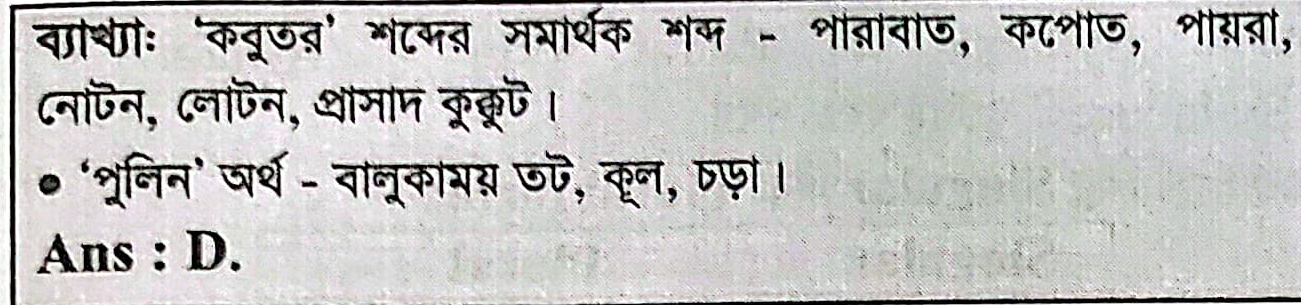 ব্যাখ্যাঃ 'কবুতর' শব্দের সমার্থক শব্দ - পারাবাত, কপোত, পায়রা,
নোটন, লোটন, প্রাসাদ কুক্কুট।
● 'পুলিন' অর্থ - বালুকাময় তট, কূল, চড়া।
Ans : D.